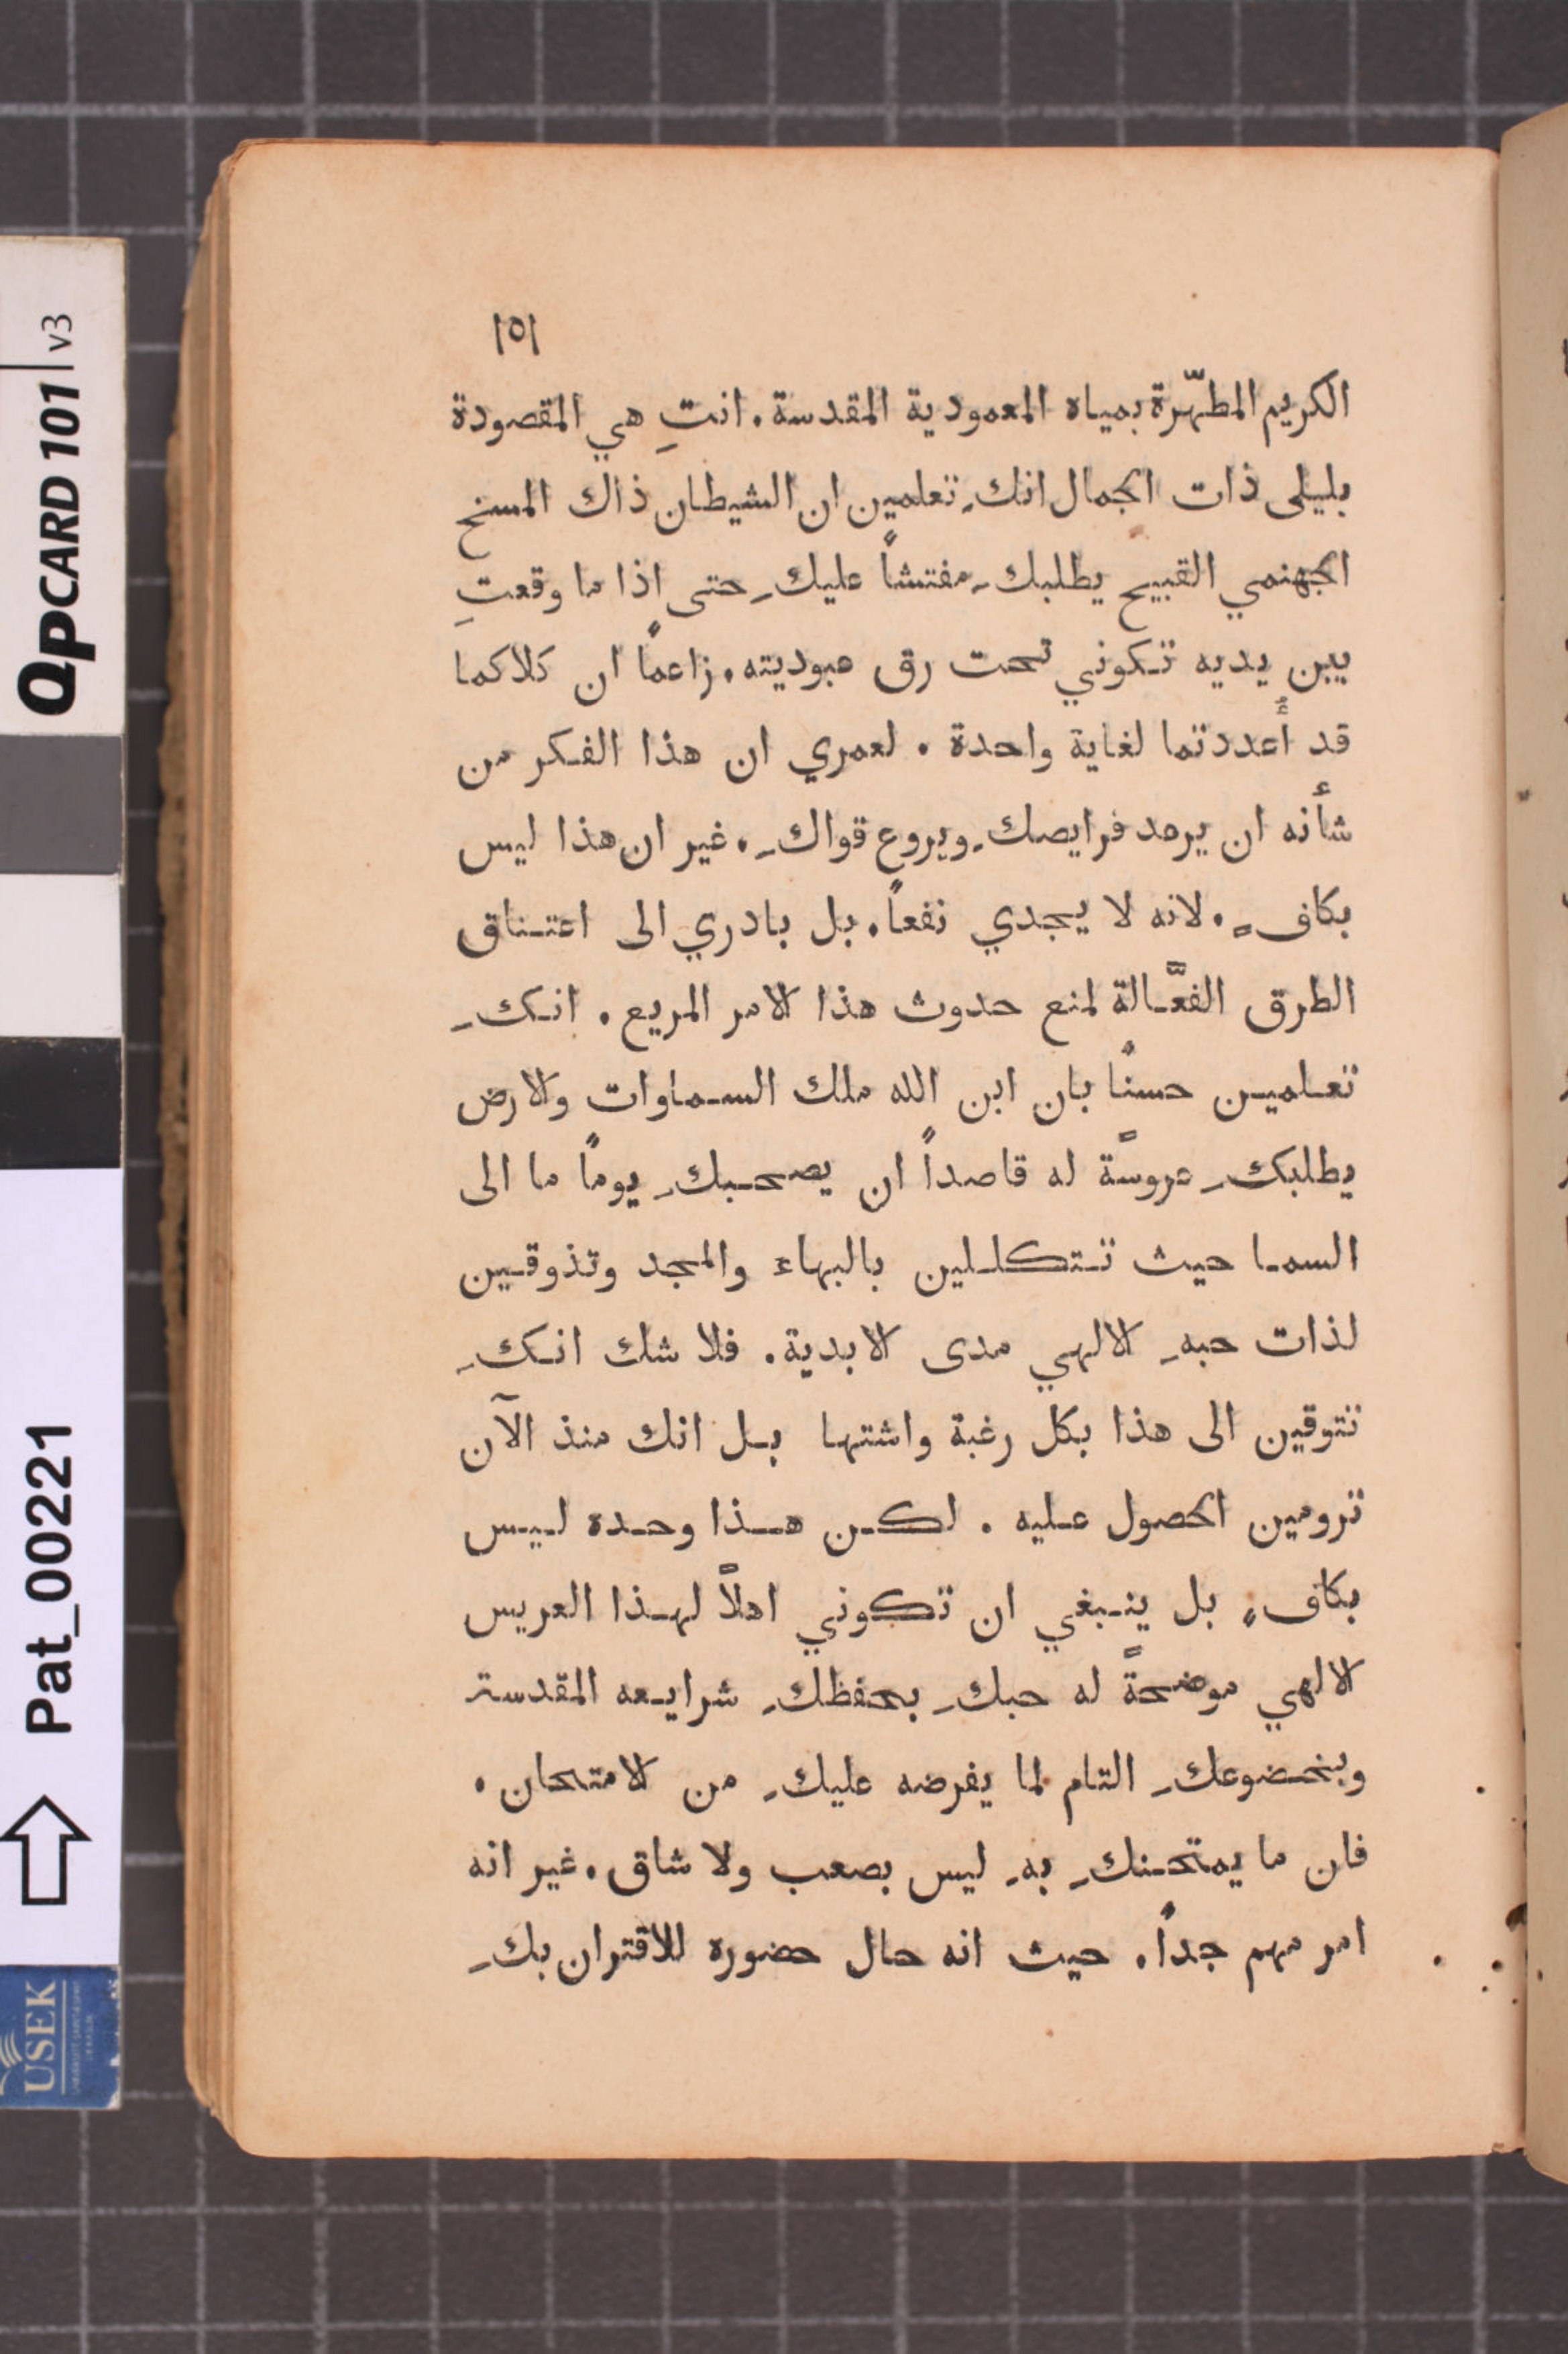 QPCARD 101 v3
Pat_00221
USEK
١٥١
الكريم المطهّرة بمياه المعمودية المقدسة. انتِ هي المقصودة
بليلى ذات الجمال انكِ تعلمين ان الشيطان ذاك المسخ
الجهنمي القبيح يطلبكِ مفتشاً عليكِ حتى اذا ما وقعتِ
بين يديه تكوني تحت رق عبوديته. زاعماً ان كلاكما
قد أُعددتما لغاية واحدة. لعمري ان هذا الفكر من
شأنه ان يرعد فرايصكِ ويروع قواكِ. غير ان هذا ليس
بكافٍ. لانه لا يجدي نفعاً. بل بادري الى اعتناق
الطرق الفعَّالة لمنع حدوث هذا الامر المريع. انكِ
تعلمين حسنًا بان ابن الله ملك السماوات والارض
يطلبكِ عروسًة له قاصداً ان يصحبكِ يومًا ما الى
السما حيث تتكللين بالبهاء والمجد وتذوقين
لذات حبهِ الالهي مدى الابدية. فلا شك انكِ
تتوقين الى هذا بكل رغبة واشتها بل انك منذ الآن
ترومين الحصول عليه. لكن هذا وحده ليس
بكافٍ بل ينبغي ان تكوني اهلاً لهذا العريس
الالهي موضحةً له حبكِ بحفظكِ شرايعه المقدسة
وبخضوعكِ التام لما يفرضه عليكِ من الامتحان.
فان ما يمتحنكِ بهِ ليس بصعب ولا شاق. غير انه
امر مهم جداً. حيث انه حال حضوره للاقتران بكِ